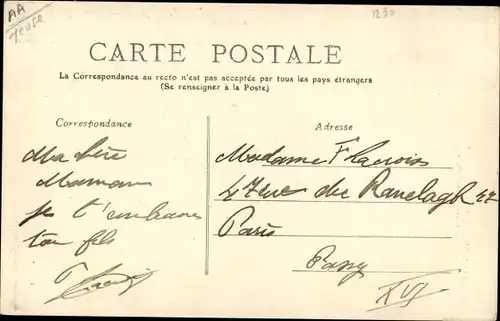 AA
1230
CARTE POSTALE
La Correspondance au recto n'est pas acceptée par tous les pays étrangers
(Se renseigner à la Poste)
Correspondance
Ma chère
Maman
je t'embrasse
ton fils
Adresse
Madame Flacrois
47 rue du Ranelagh
Paris
Passy
XVI